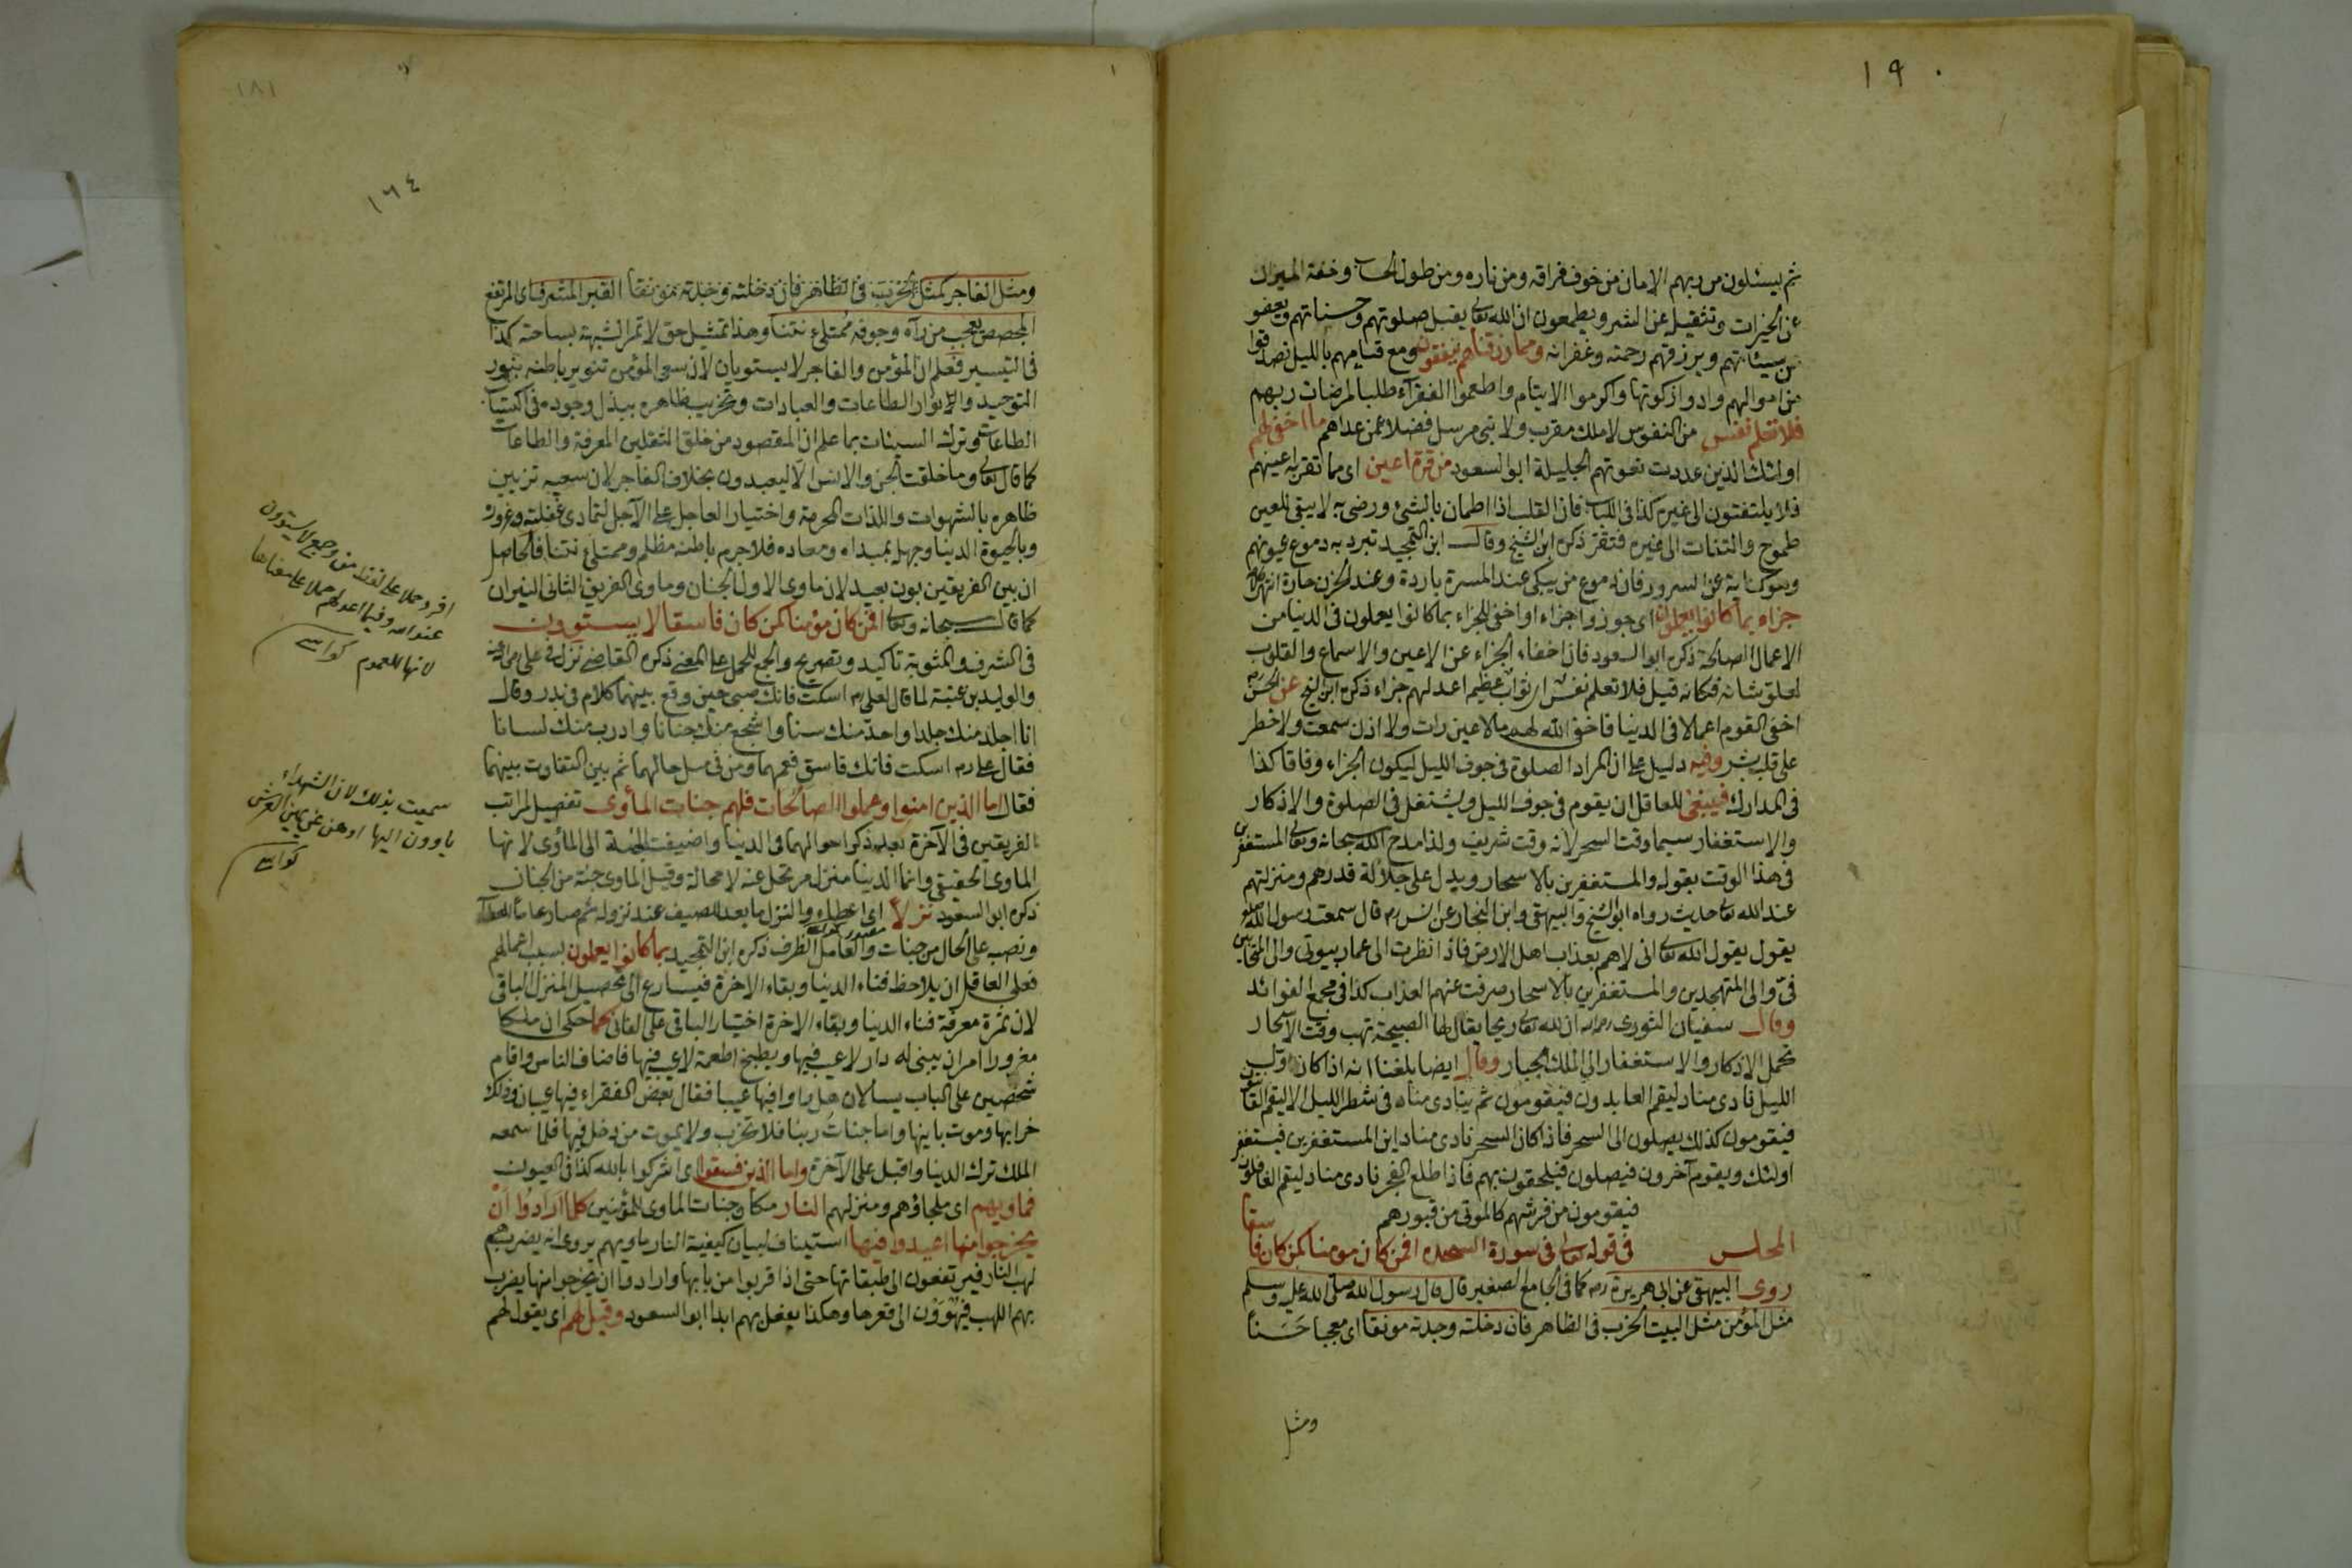 ١٩٠
ثم يسئلون من ربهم الامان من خوف فراقه ومن ناره ومن طول الحساب وخفة الميزان
عن الخيرات وتثقيل عن الشر ويطمعون ان الله تعالى يقبل صلوتهم وحسناتهم ويعفو
عن سيئاتهم ويرزقهم رحمته وغفرانه ومما رزقناهم ينفقون ومع قيامهم بالليل تصدقوا
من اموالهم وادوا زكوتها واكرموا الايتام واطعموا الفقرآء طلبا لمرضات ربهم
فلا تعلم نفس من النفوس لا ملك مقرب ولا نبى مرسل فضلا عمن عداهم ما اخفى لهم
اولئك الذين عددت نعوتهم الجليلة ابو السعود من قرة اعين اى مما تقر به اعينهم
فلا يلتفتون الى غيره كذا فى اللباب فان القلب اذا اطمان بالشئ ورضى به لا يبقى للعين
طموح والتفات الى غيره فتقر ذكره ابن الشيخ وقال ابن التمجيد تبرد به دموع عيونهم
وهو كناية عن السرور فان دموع من يبكى عند المسرة باردة وعند الحزن حارة انتهى
جزاء بما كانوا يعملون اى جوزوا جزاء او اخفى للجزاء بما كانوا يعملون فى الدنيا من
الاعمال الصالحة ذكره ابو السعود فان اخفاء الجزاء عن الاعين والاسماع والقلوب
لعلو شانه فكانه قيل فلا تعلم نفس اى ثواب عظيم اعد لهم جزاء ذكره ابن الشيخ عن الحسن
اخفى القوم اعمالا فى الدنيا فاخفى الله لهم مالا عين رات ولا اذن سمعت ولا خطر
على قلب بشر وفيه دليل على ان المراد الصلوة فى جوف الليل ليكون الجزاء وفاقا كذا
فى المدارك فينبغى للعاقل ان يقوم فى جوف الليل ويشتغل فى الصلوة والاذكار
والاستغفار سيما وقت السحر لانه وقت شريف ولذا مدح الله سبحانه وتعالى المستغفرين
فى هذا الوقت بقوله والمستغفرين بالاسحار ويدل على جلالة قدرهم ومنزلتهم
عند الله تعالى حديث رواه ابو الشيخ والبيهقى وابن النجار عن انس رم قال سمعت رسول الله صلم
يقول يقول الله تعالى انى لاهم بعذاب اهل الارض فاذا نظرت الى عمار بيوتى والى المتحابين
فىّ والى المتهجدين والمستغفرين بالاسحار صرفت عنهم العذاب كذا فى مجمع الفوائد
وقال سفيان الثورى رحمه الله ان لله تعالى ريحا يقال لها الصبيحة تهب وقت الاسحار
تحمل الاذكار والاستغفار الى الملك الجبار وقال ايضا بلغنا انه اذا كان اول
الليل نادى مناد ليقم العابدون فيقومون ثم ينادى مناد فى شطر الليل الا ليقم القانتون
فيقومون كذلك يصلون الى السحر فاذا كان السحر نادى مناد اين المستغفرين فيستغفر
اولئك ويقوم آخرون فيصلون فيلحقون بهم فاذا طلع الفجر نادى مناد ليقم الغافلون
فيقومون من فرشهم كالموتى من قبورهم
المجلس فى قوله تعالى فى سورة السجدة افمن كان مومنا كمن كان فاسقا
روى البيهقى عن ابى هريرة رم كما فى الجامع الصغير قال قال رسول الله صلى الله عليه وسلم
مثل المؤمن مثل البيت الخرب فى الظاهر فان دخلته وجدته مونقا اى معجبا حَسَناً
ومثل
١٨١
١٦٤
ومثل الفاجر كمثل فى الظاهر فان دخلته وجدته القبر المشرف اى المرتفع
المجصص يعجب من رآه وجوفه ممتلئ نتنا وهذا تمثيل حق لا تمر الشبهة بساحته كذا
فى التيسير فعلم ان المؤمن والفاجر لا يستويان لان سعى المؤمن تنوير باطنه بنور
التوحيد والانوار الطاعات والعبادات وتخريب ظاهره ببذل وجوده فى اكتساب
الطاعات وترك السيئات بما علم ان المقصود من خلق الثقلين المعرفة والطاعات
كما قال تعالى وما خلقت الجن والانس الا ليعبدون بخلاف الفاجر لان سعيه تزيين
ظاهره بالشهوات واللذات المحرمة واختيار العاجل على الآجل لتمادى غفلته وغروره
وبالحيوة الدنيا وجهل بمبداه ومعاده فلا جرم باطنه مظلم وممتلئ نتنا فالحاصل
ان بين الفريقين بون بعيد لان ماوى الاول الجنان وماوى الفريق الثانى النيران
كما قال سبحانه وتعالى افمن كان مؤمنا كمن كان فاسقا لا يستوون
فى الشرف والمثوبة تاكيد وتصريح والجمع للحمل على المعنى ذكره القاضى نزل فى على
والوليد بن عقبة لما قال لعلى رم اسكت فانك صبى حين وقع بينهما كلام فى بدر وقال
انا اجلد منك جلدا واحد منك سنا واشجع منك جنانا وادرب منك لسانا
فقال على رم اسكت فانك فاسق فعمهما ومن فى مثل حالهما ثم بين التفاوت بينهما
فقال اما الذين امنوا وعملوا الصالحات فلهم جنات المأوى تفصيل لمراتب
الفريقين فى الآخرة بعد ذكر احوالهما فى الدنيا واضيفت الجنة الى المأوى لانها
الماوى الحقيقى وانما الدنيا منزل مرتحل عنه لا محالة وقيل الماوى جنة من الجنان
ذكره ابو السعود نزلاً اى اعطاء والنزل ما يعد للضيف عند نزوله ثم صار عاما
ونصب على الحال من جنات والعامل الظرف ذكره ابن التمجيد بما كانوا يعملون بسبب اعمالهم
فعلى العاقل ان يلاحظ فناء الدنيا وبقاء الاخرة فيسارع الى تحصيل المنزل الباقى
لان ثمرة معرفة فناء الدنيا وبقاء الاخرة اختيار الباقى على الفانى كما حكى ان ملكا
مغرورا امر ان يبنى له دار لا عيب فيها ويطبخ اطعمة لا عيب فيها فاضاف الناس واقام
شخصين على الباب يسالان هل راوا فيها عيبا فقال بعض الفقراء فيها عيبان وذلك
خرابها وموت بانيها واما جنات ربنا فلا تخرب ولا يموت من دخل فيها فلما سمعه
الملك ترك الدنيا واقبل على الآخرة واما الذين فسقوا اى اشركوا بالله كذا فى العيون
فماويهم اى ملجاؤهم ومنزلهم النار مكان جنات الماوى للمؤمنين كلما ارادوا ان
يخرجوا منها اعيدوا فيها استيناف لبيان كيفية النار ماويهم يروى انه يضربهم
لهب النار فيرتفعون الى طبقاتها حتى اذا قربوا من بابها وارادوا ان يخرجوا منها يضرب
بهم اللهب فيهوون الى قعرها وهكذا يفعل بهم ابدا ابو السعود وقيل لهم اى يقول لهم
افرد حملا على لفظ من وجمع لا يستوون
عند الله وفيما اعد لهم حملا على معناها
لانها للعموم كواشى
سميت بذلك لان الشهداء
ياوون اليها او هن عن يمين العرش
كواشى